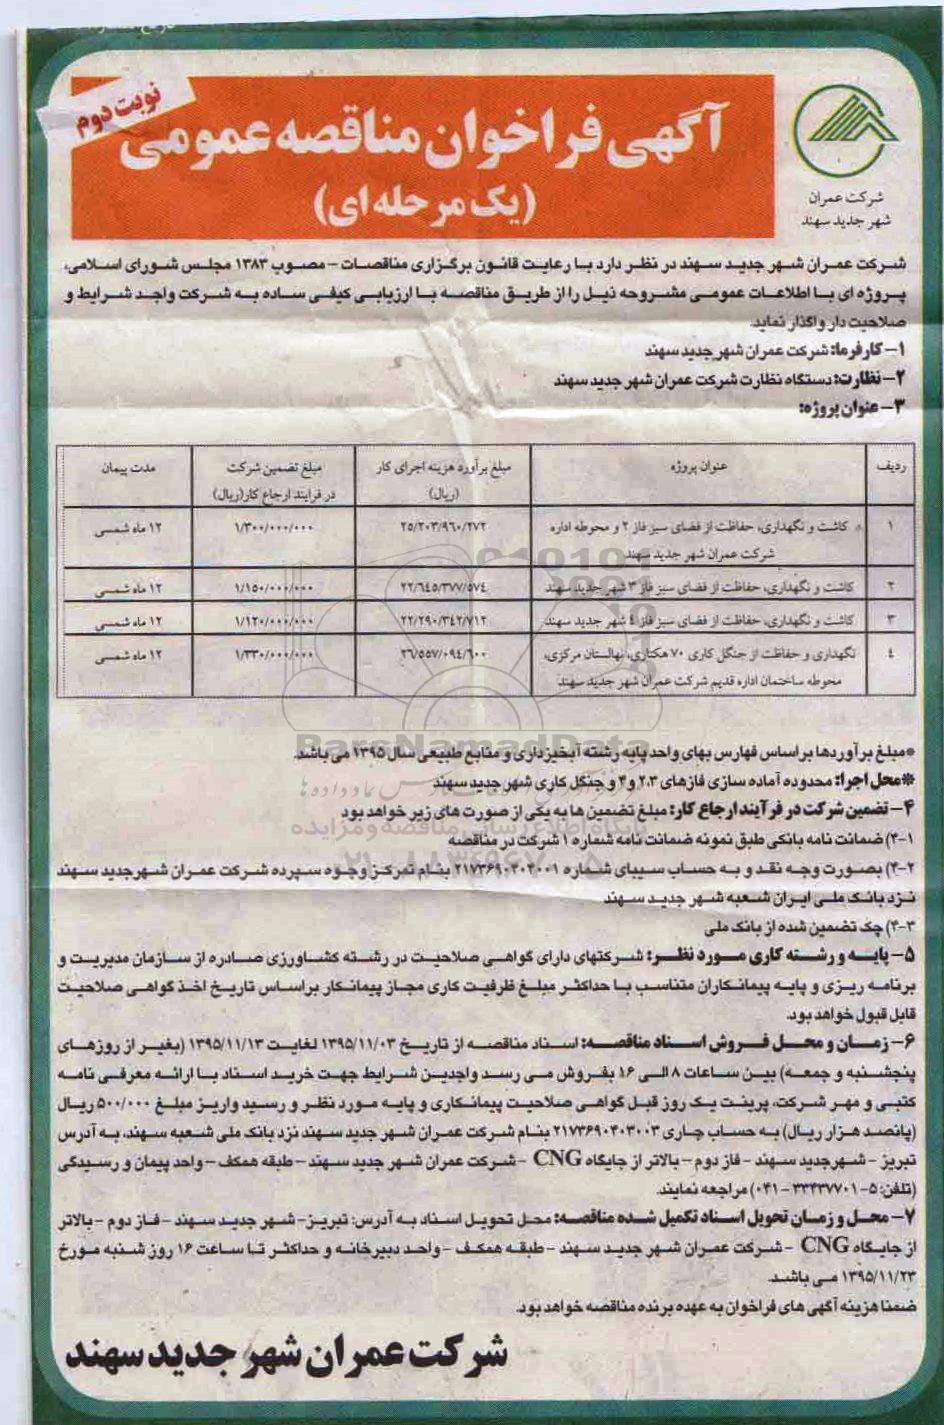 نوبت دوم
آگهی فراخوان مناقصه عمومی
(یک مرحله ای)
شرکت عمران
شهر جدید سهند
شرکت عمران شهر جدید سهند در نظر دارد با رعایت قانون برگزاری مناقصات – مصوب ۱۳۸۳ مجلس شورای اسلامی،
پروژه ای با اطلاعات عمومی مشروحه ذیل را از طریق مناقصه با ارزیابی کیفی ساده به شرکت واجد شرایط و
صلاحیت دار واگذار نماید.
۱– کارفرما: شرکت عمران شهر جدید سهند
۲– نظارت: دستگاه نظارت شرکت عمران شهر جدید سهند
۳– عنوان پروژه:
ردیف | عنوان پروژه | مبلغ برآورد هزینه اجرای کار (ریال) | مبلغ تضمین شرکت در فرایند ارجاع کار(ریال) | مدت پیمان
۱ | کاشت و نگهداری، حفاظت از فضای سبز فاز ۲ و محوطه اداره شرکت عمران شهر جدید سهند | ۲۵/۲۰۳/۹۶۰/۲۷۲ | ۱/۳۰۰/۰۰۰/۰۰۰ | ۱۲ ماه شمسی
۲ | کاشت و نگهداری، حفاظت از فضای سبز فاز ۳ شهر جدید سهند | ۲۲/۶۴۵/۳۷۷/۵۷۴ | ۱/۱۵۰/۰۰۰/۰۰۰ | ۱۲ ماه شمسی
۳ | کاشت و نگهداری، حفاظت از فضای سبز فاز ٤ شهر جدید سهند | ۲۲/۲۹۰/۳۴۲/۷۱۲ | ۱/۱۲۰/۰۰۰/۰۰۰ | ۱۲ ماه شمسی
٤ | نگهداری و حفاظت از جنگل کاری ۷۰ هکتاری، نهالستان مرکزی، محوطه ساختمان اداره قدیم شرکت عمران شهر جدید سهند | ۲۶/۵۵۷/۰۹۴/۶۰۰ | ۱/۳۳۰/۰۰۰/۰۰۰ | ۱۲ ماه شمسی
ParsNamadData
*مبلغ برآوردها براساس فهارس بهای واحد پایه رشته آبخیزداری و منابع طبیعی سال ۱۳۹۵ می باشد.
*محل اجرا: محدوده آماده سازی فازهای ۲،۳ و ۴ و جنگل کاری شهر جدید سهند
۴– تضمین شرکت در فرآیند ارجاع کار: مبلغ تضمین ها به یکی از صورت های زیر خواهد بود
پایگاه اطلاع رسانی مناقصه و مزایده
۴-۱) ضمانت نامه بانکی طبق نمونه ضمانت نامه شماره ۱ شرکت در مناقصه
۴-۲) بصورت وجه نقد و به حساب سیبای شماره ۲۱۷۳۶۹۰۴۰۴۰۰۱ بنام تمرکز وجوه سپرده شرکت عمران شهرجدید سهند
نزد بانک ملی ایران شعبه شهر جدید سهند
۴-۳) چک تضمین شده از بانک ملی
۵– پایه و رشته کاری مورد نظر: شرکتهای دارای گواهی صلاحیت در رشته کشاورزی صادره از سازمان مدیریت و
برنامه ریزی و پایه پیمانکاران متناسب با حداکثر مبلغ ظرفیت کاری مجاز پیمانکار براساس تاریخ اخذ گواهی صلاحیت
قابل قبول خواهد بود.
۶– زمان و محل فروش اسناد مناقصه: اسناد مناقصه از تاریخ ۱۳۹۵/۱۱/۰۳ لغایت ۱۳۹۵/۱۱/۱۳ (بغیر از روزهای
پنجشنبه و جمعه) بین ساعات ۸ الی ۱۶ بفروش می رسد واجدین شرایط جهت خرید اسناد با ارائه معرفی نامه
کتبی و مهر شرکت، پرینت یک روز قبل گواهی صلاحیت پیمانکاری و پایه مورد نظر و رسید واریز مبلغ ۵۰۰/۰۰۰ ریال
(پانصد هزار ریال) به حساب جاری ۲۱۷۳۶۹۰۴۰۳۰۰۳ بنام شرکت عمران شهر جدید سهند نزد بانک ملی شعبه سهند، به آدرس
تبریز – شهرجدید سهند – فاز دوم – بالاتر از جایگاه CNG – شرکت عمران شهر جدید سهند – طبقه همکف – واحد پیمان و رسیدگی
(تلفن: ۵-۳۳۴۳۷۷۰۱ -۰۴۱) مراجعه نمایند.
۷– محل و زمان تحویل اسناد تکمیل شده مناقصه: محل تحویل اسناد به آدرس: تبریز- شهر جدید سهند – فاز دوم – بالاتر
از جایگاه CNG – شرکت عمران شهر جدید سهند – طبقه همکف – واحد دبیرخانه و حداکثر تا ساعت ۱۶ روز شنبه مورخ
۱۳۹۵/۱۱/۲۳ می باشد.
ضمنا هزینه آگهی های فراخوان به عهده برنده مناقصه خواهد بود.
شرکت عمران شهر جدید سهند